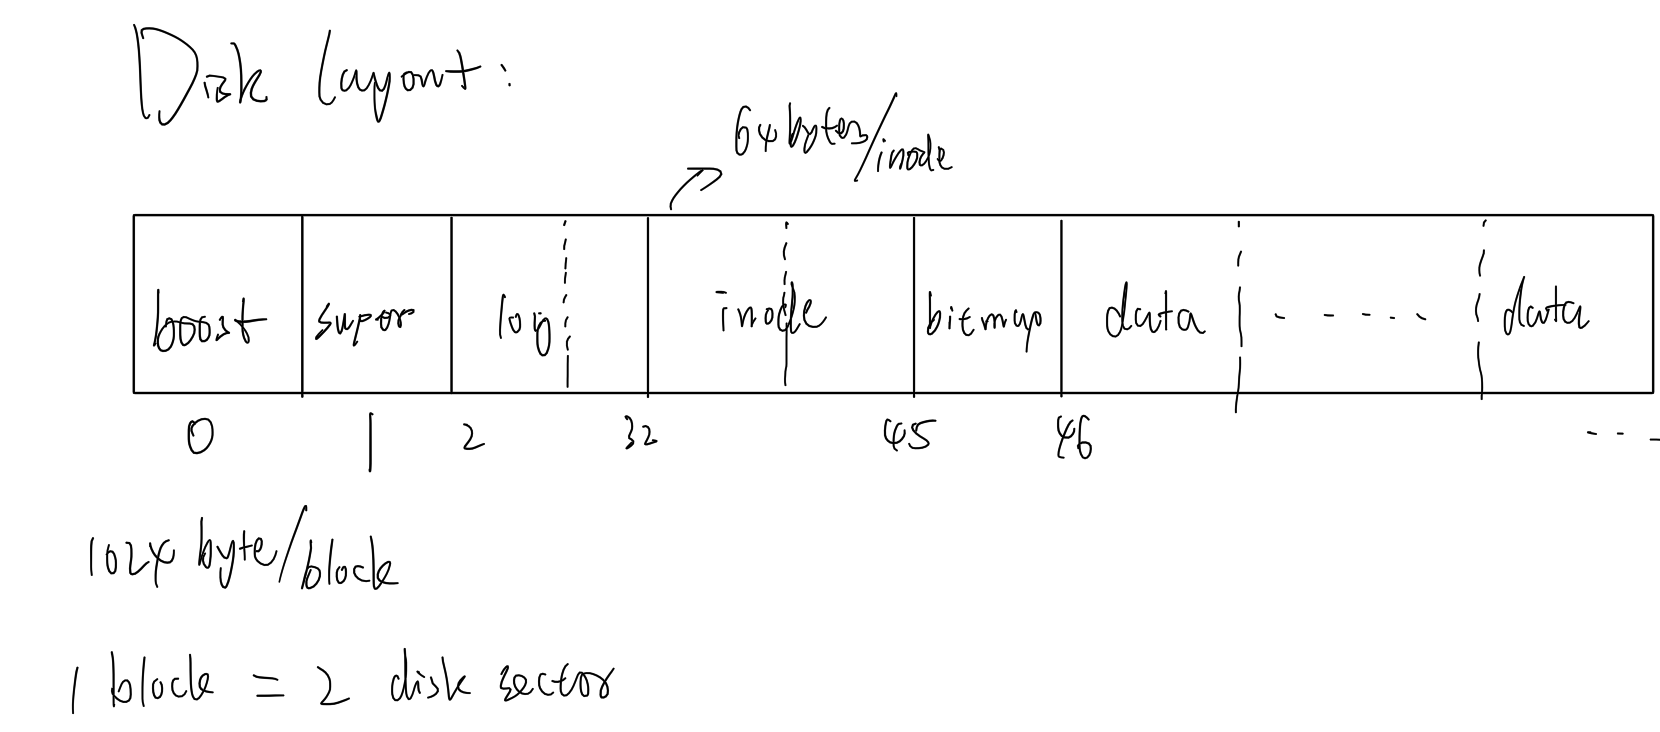 Disk layout:
64 bytes/inode
boost super log inode bitmap data ----- data
0 1 2 32 45 46 ---
1024 byte/block
1 block = 2 disk sector